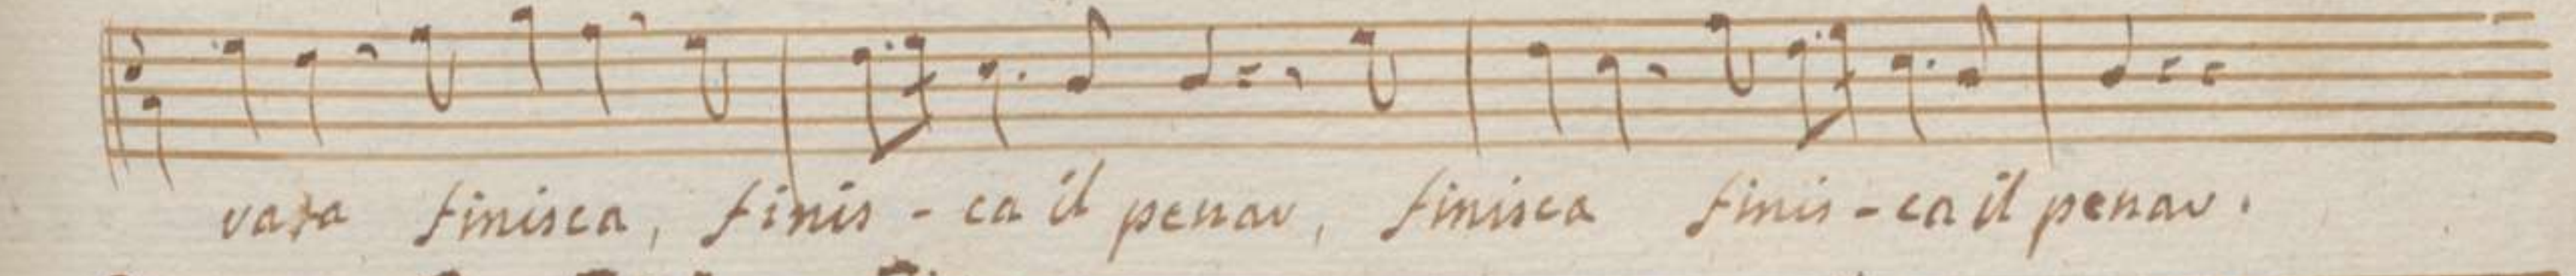 vata finisca, finis - ca il penar, finisca finis - ca il penar.